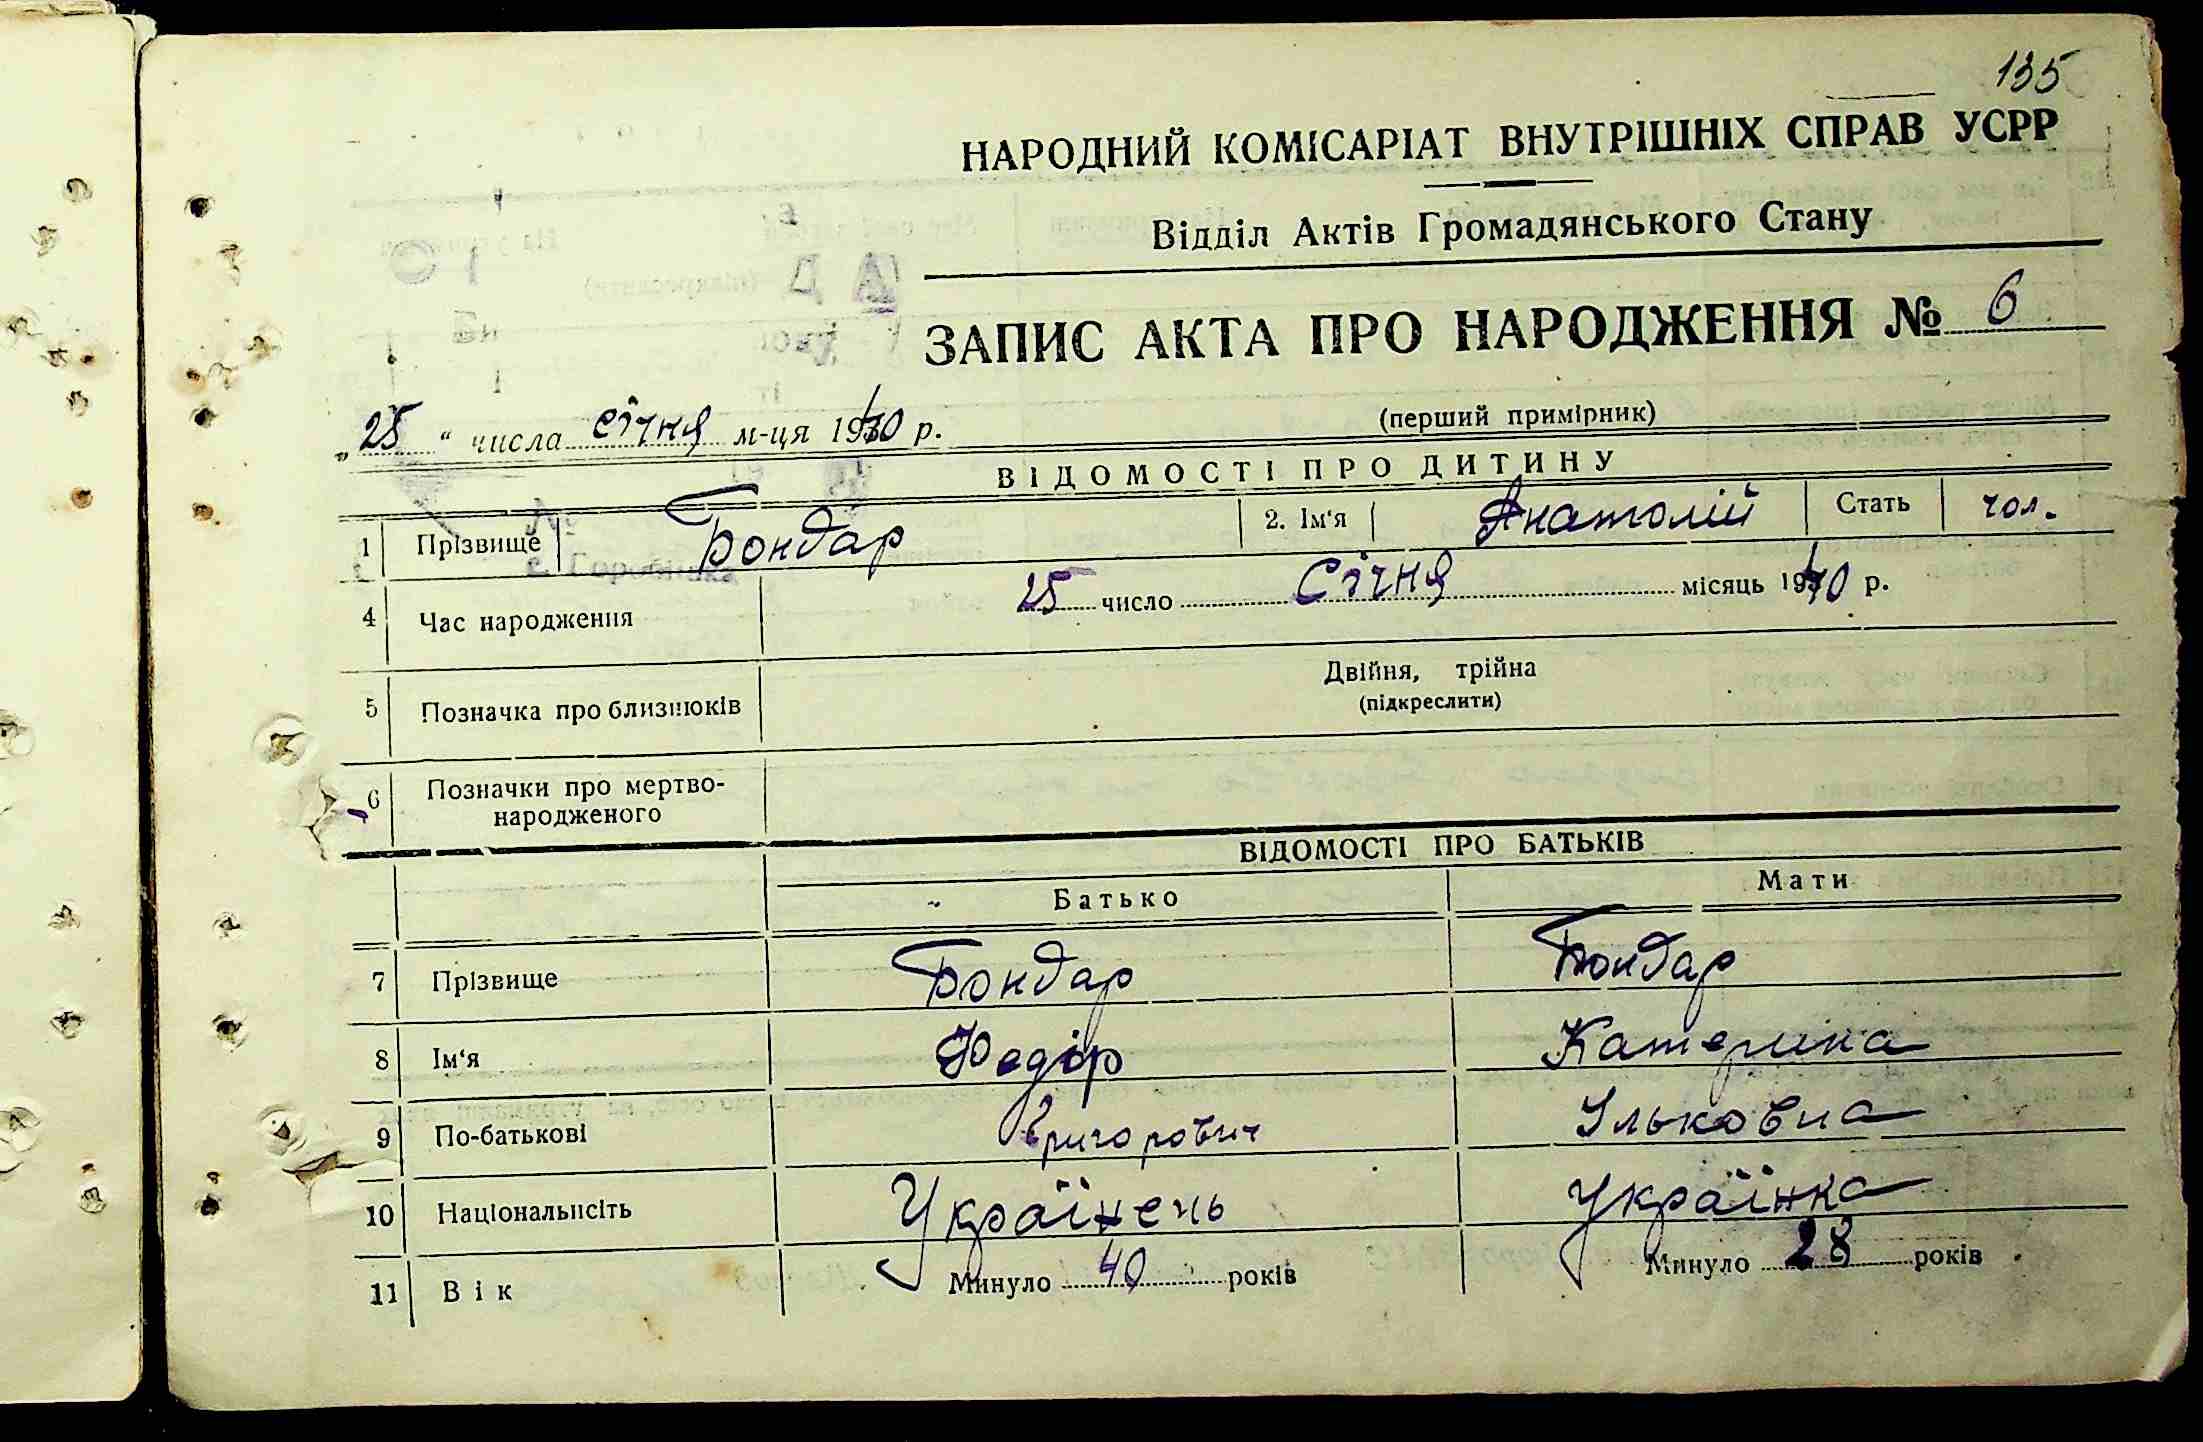 135
НАРОДНИЙ КОМІСАРІАТ ВНУТРІШНІХ СПРАВ УСРР
Відділ Актів Громадянського Стану
ЗАПИС АКТА ПРО НАРОДЖЕННЯ № 6
„25“ числа січня м-ця 1940 р.
(перший примірник)
ВІДОМОСТІ ПРО ДИТИНУ
1 Прізвище Бондар 2. Ім'я Анатолій Стать чол.
4 Час народження 25 число Січня місяць 1940 р.
5 Позначка про близнюків Двійня, трійна
(підкреслити)
6 Позначки про мертво-
народженого
ВІДОМОСТІ ПРО БАТЬКІВ
Батько Мати
7 Прізвище Бондар Бондар
8 Ім'я Федір Катеріна
9 По-батькові Григорович Ільковна
10 Національність Українець Українка
11 Вік Минуло 40 років Минуло 28 років